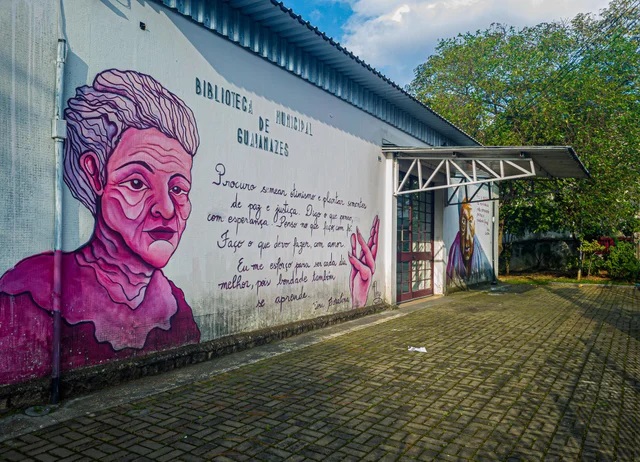 BIBLIOTECA MUNICIPAL
DE
GUAIANAZES
Procuro semear otimismo e plantar sementes
de paz e justiça. Digo o que penso,
com esperança. Penso no que faço, com fé.
Faço o que devo fazer, com amor.
Eu me esforço para ser cada dia
melhor, pois bondade também
se aprende.
Cora Coralina